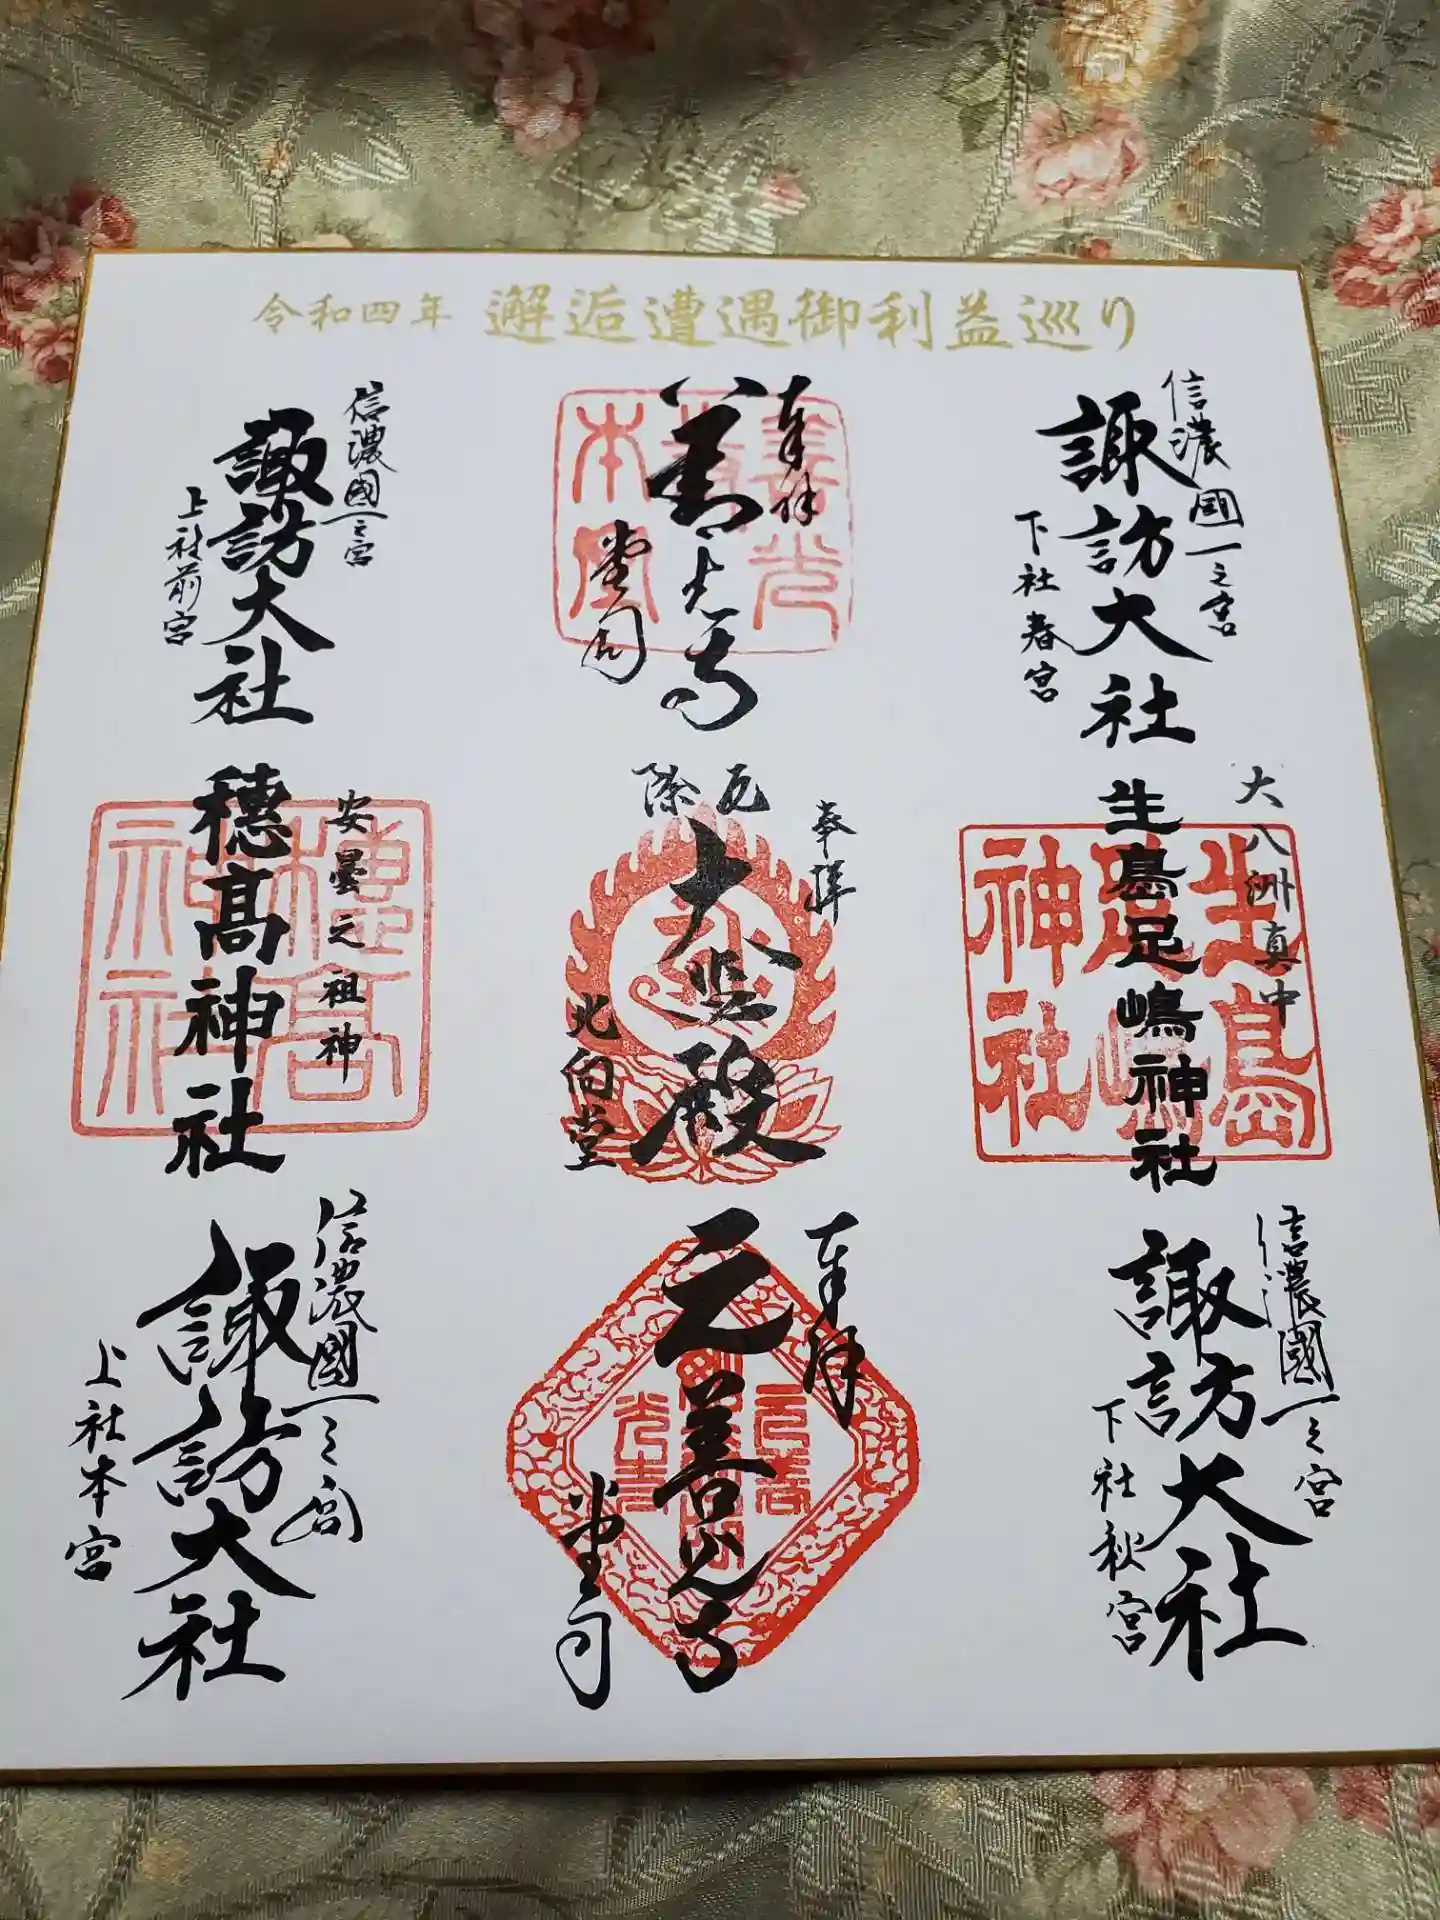 令和四年 邂逅遭遇御利益巡り
信濃國一之宮
諏訪大社
下社春宮
奉拝
善光寺
堂司
信濃國一之宮
諏訪大社
上社前宮
大八洲真中
生島足嶋神社
生島足嶋神社
奉拝
厄除
大悲殿
北向堂
安曇之祖神
穂高神社
穂高神社
信濃國一之宮
諏訪大社
下社秋宮
奉拝
元善光寺
堂司
信濃國一之宮
諏訪大社
上社本宮